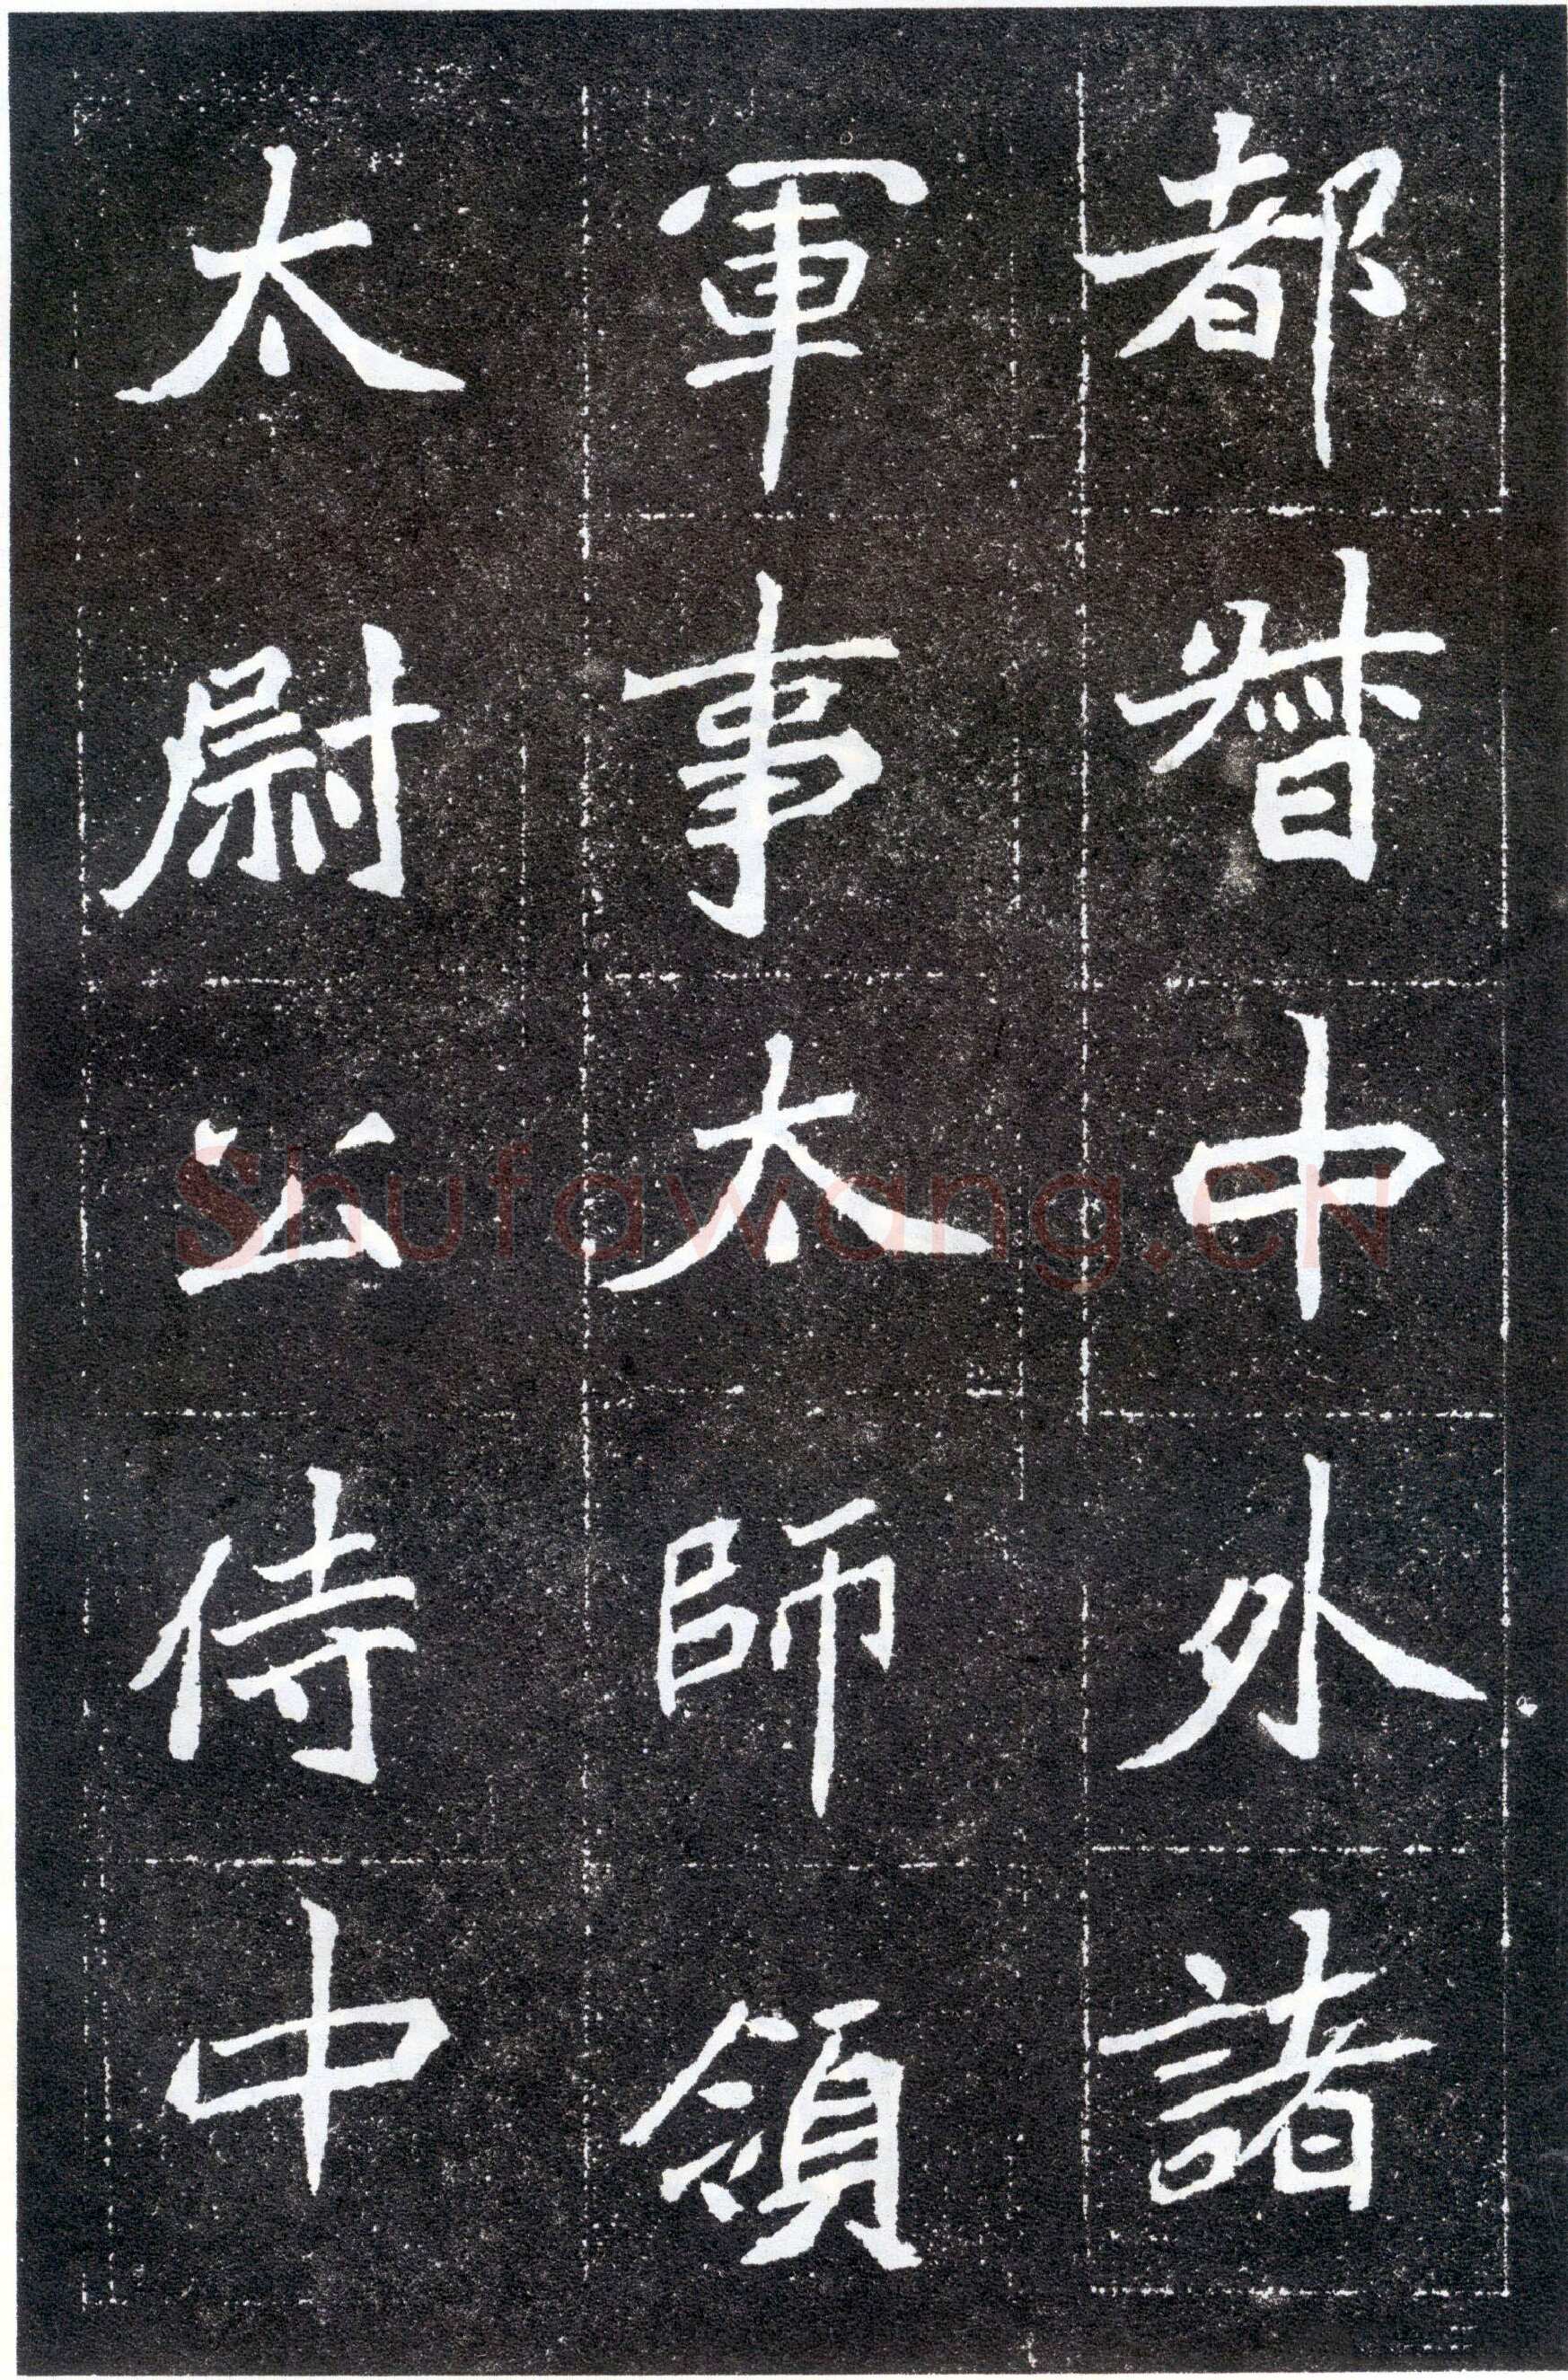 都督中外諸
軍事太師領
太尉公侍中
Shufawang.CN